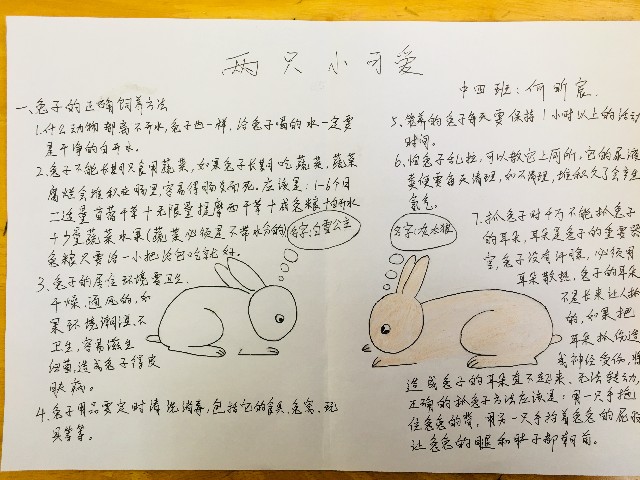 两只小可爱
中四班：何昕宸
一、兔子的正确饲养方法
1.什么动物都离不开水，兔子也一样，给兔子喝的水一定要
是干净的白开水。
2.兔子不能长期只食用蔬菜，如果兔子长期吃蔬菜，蔬菜
腐烂会堆积在肠里，容易得肠炎而死。应该是：1-6个月
二边量苜蓿干草+无限量提摩西干草+成兔粮+白开水
+少量蔬菜水果（蔬菜必须是不带水分的）
兔粮只要给一小把治它吃就好。
名字：白雪公主
3.兔子的居住环境需卫生、
干燥、通风的，如
果环境潮湿、不
卫生，容易滋生
细菌，造成兔子得皮
肤病。
4.兔子用品要定时清洗消毒，包括它的食具、兔窝、玩
具等等。
5.笼养的兔子每天要保持1小时以上的活动
时间。
6.怕兔子乱拉，可以教它上厕所，它的尿液
粪便要每天清理，如不清理，堆积久了会产生
氨气。
名字：灰太狼
7.抓兔子时千万不能抓兔子
的耳朵，耳朵是兔子的重要器
官，兔子没有汗腺，必须用
耳朵散热，兔子的耳朵
不是长来让人抓
的，如果把
耳朵抓伤造
成神经受伤，将
造成兔子的耳朵直不起来、无法转动，
正确的抓兔子方法应该是：用一只手抱
住兔兔的背，用另一只手托着兔兔的屁股
让兔兔的腿和脖子都朝前。